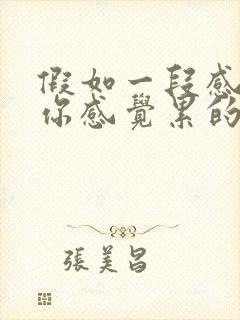 假如一段感
你感覺累的
張美昌